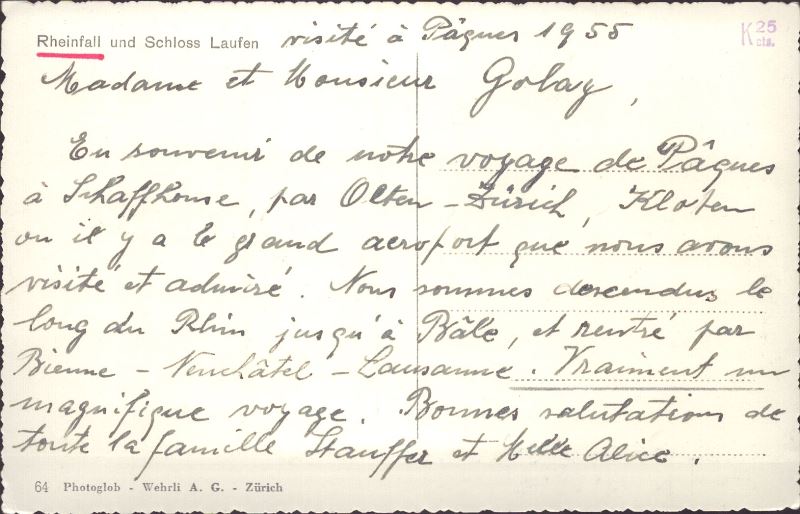 Rheinfall und Schloss Laufen visité à Pâques 1955
K 25 cts.
Madame et Monsieur Golay,
En souvenir de notre voyage de Pâques
à Schaffhouse, par Olten - Zürich, Kloten
ou il y a le grand aeroport que nous avons
visité et admiré. Nous sommes descendus le
long du Rhin jusqu'à Bâle, et rentré par
Bienne - Neuchâtel - Lausanne. Vraiment un
magnifique voyage. Bonnes salutations de
toute la famille Stauffer et Melle Alice.
64 Photoglob - Wehrli A. G. - Zürich